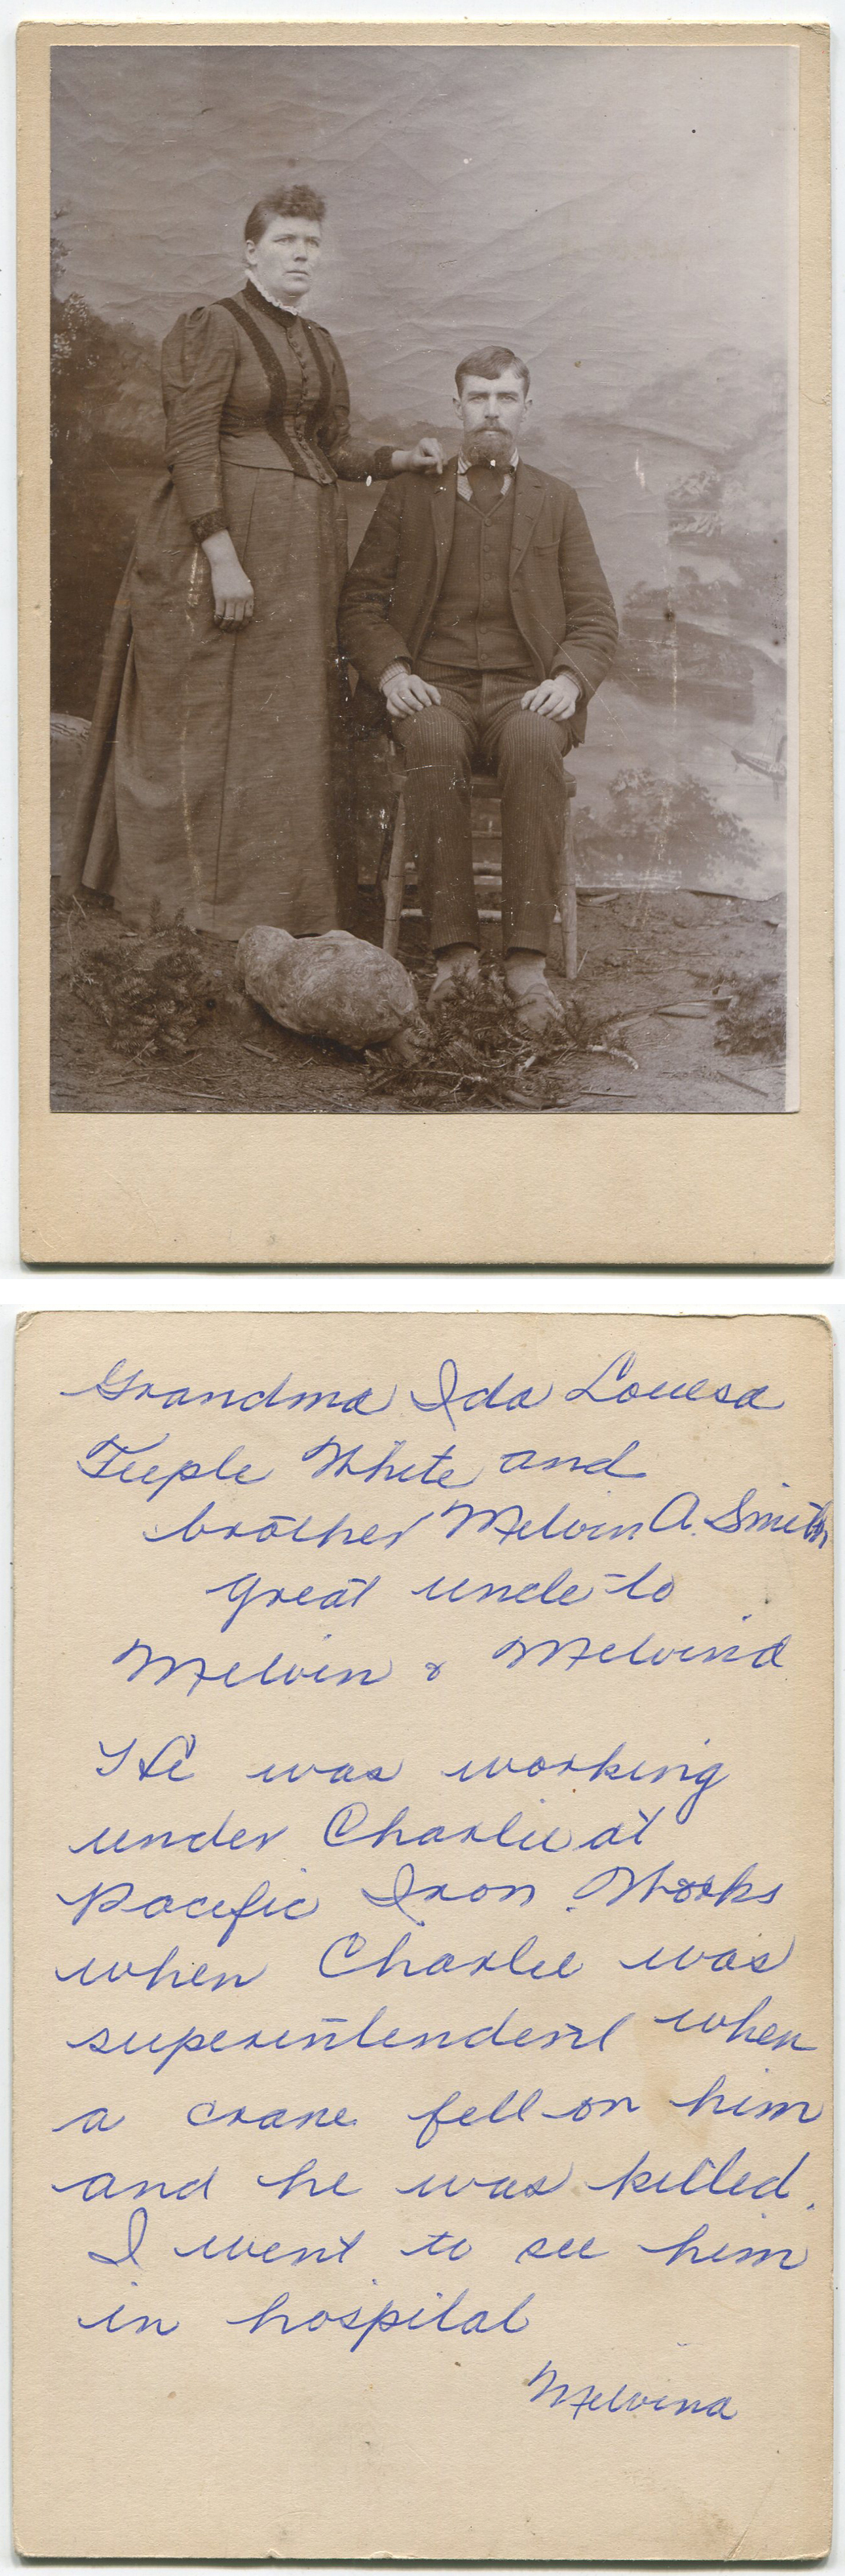 Grandma Ida Louesa
Teeple White and
brother Melvin A. Smith
great uncle to
Melvin & Melvina
He was working
under Charlie at
Pacific Iron Works
when Charlie was
superintendent when
a crane fell on him
and he was killed.
I went to see him
in hospital
Melvina